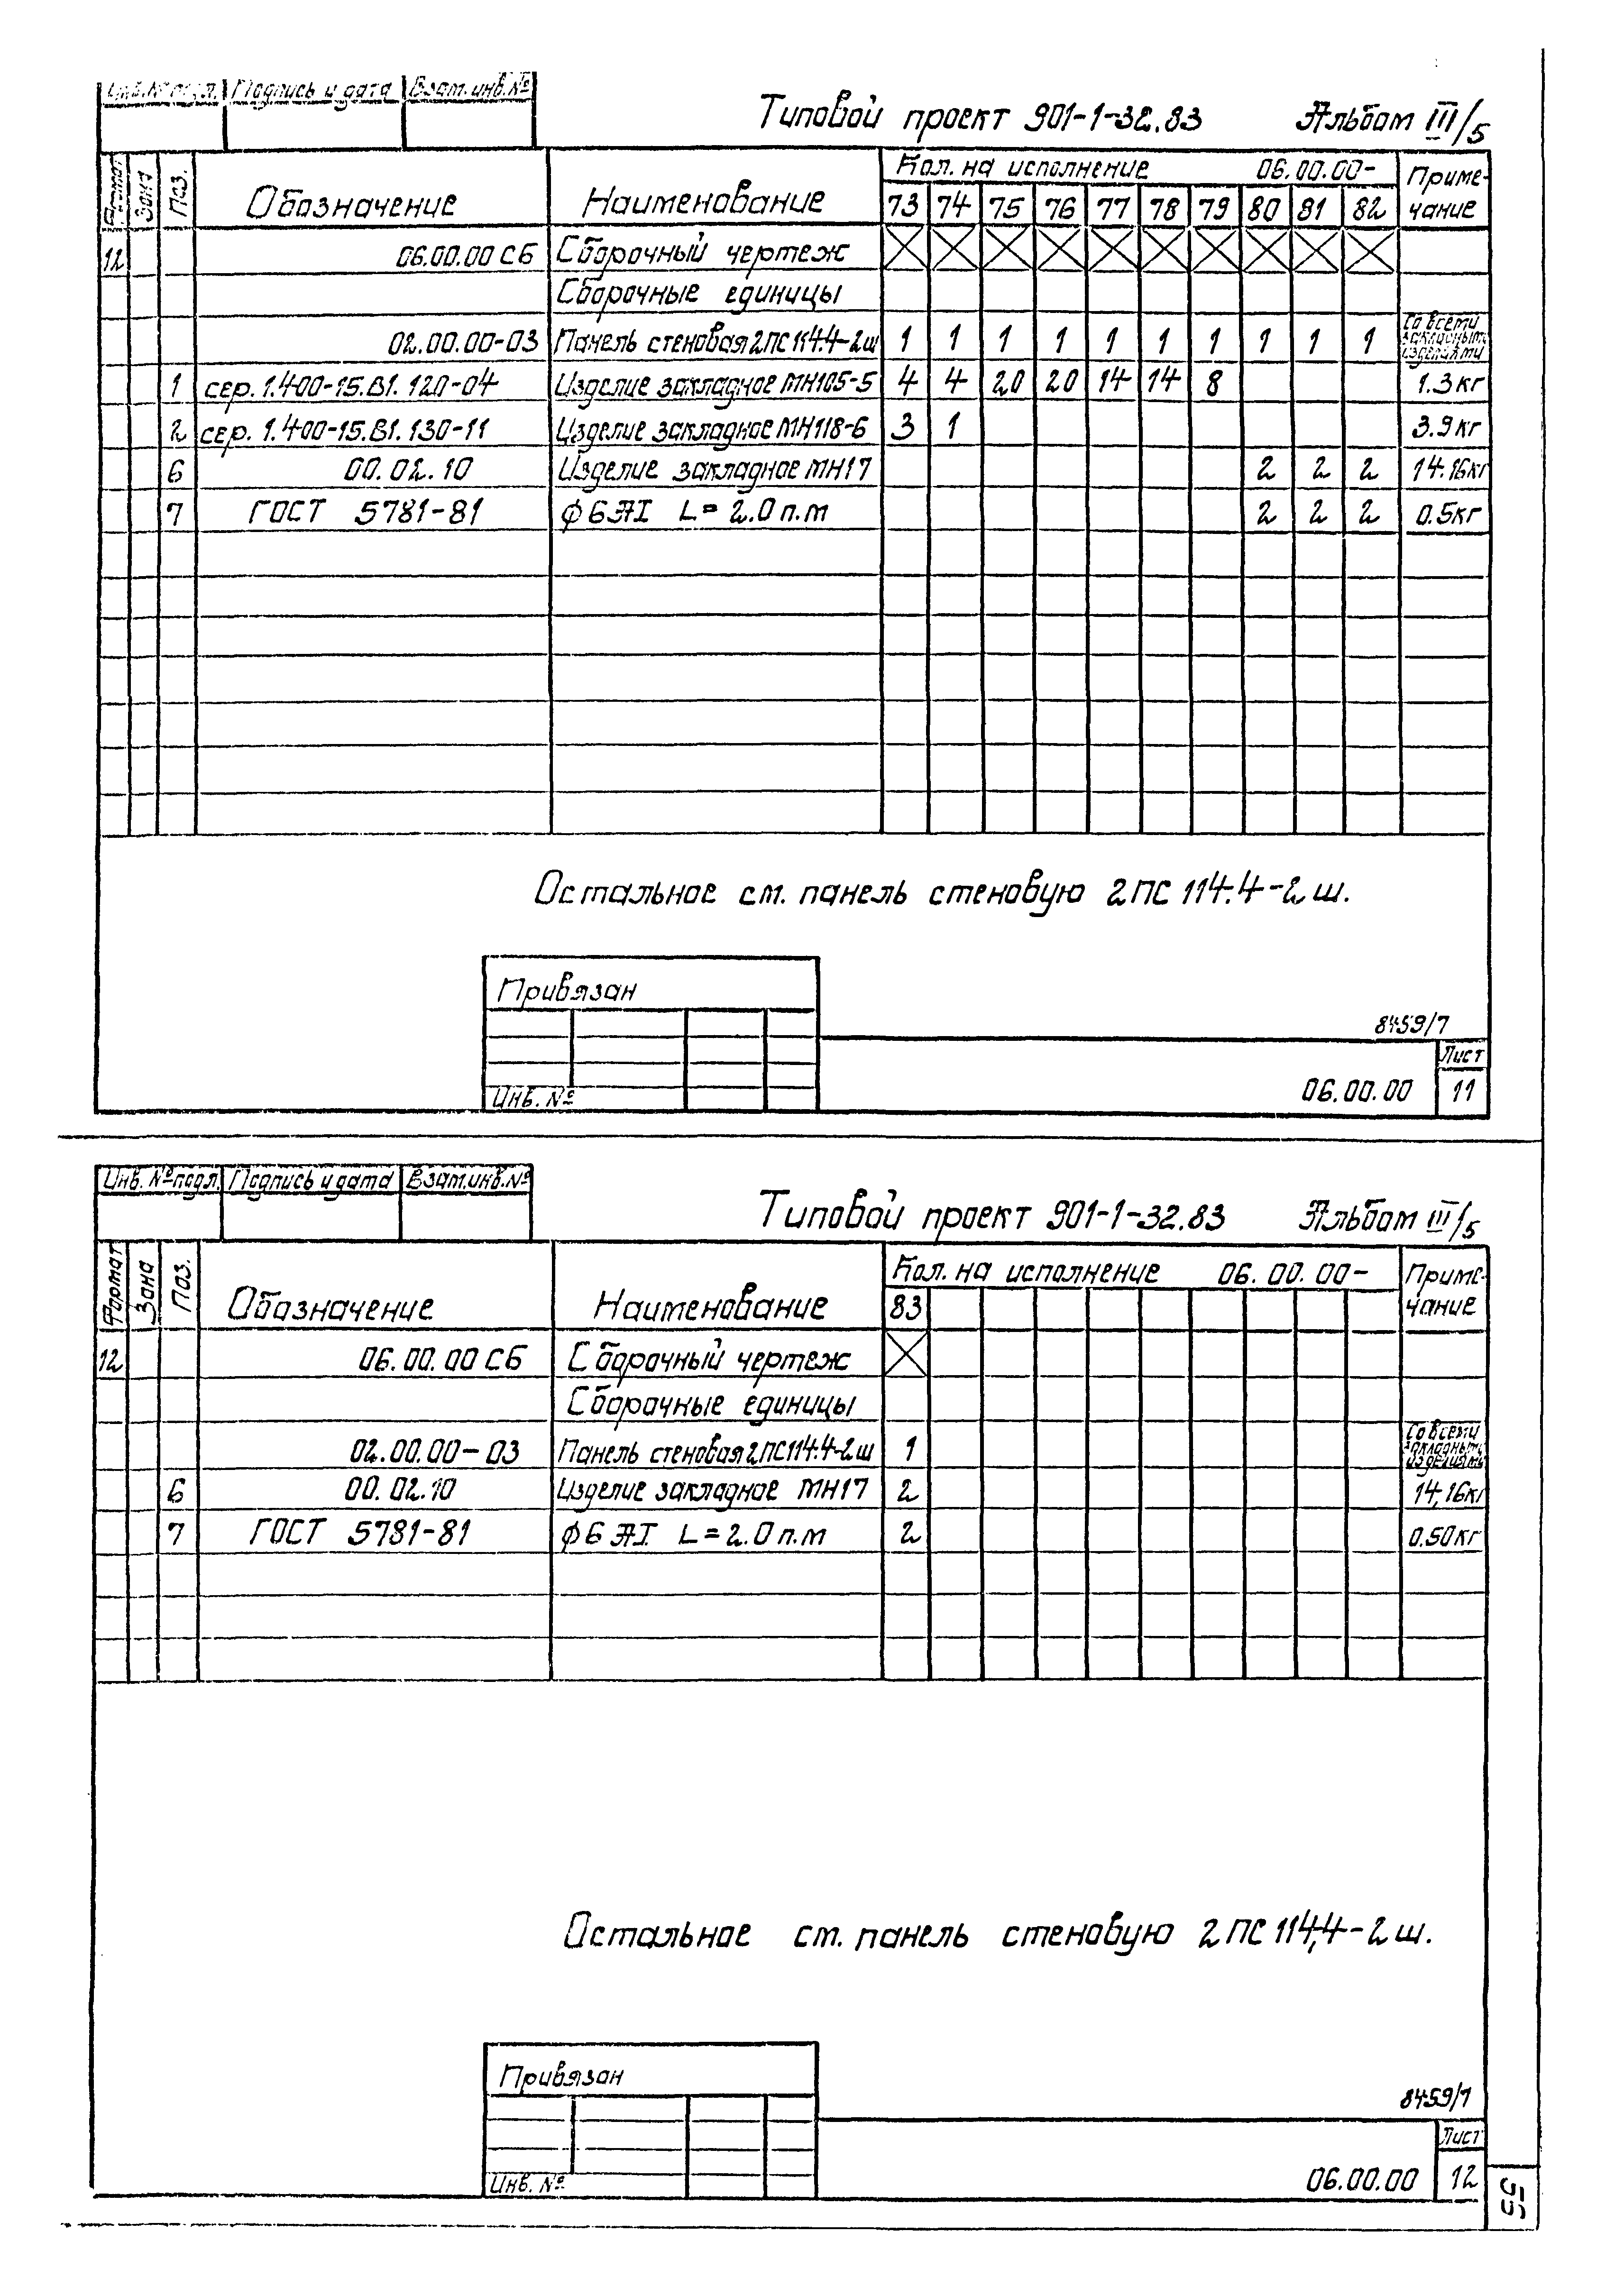 Инв. № подл. Подпись и дата Взам. инв. №
Типовой проект 901-1-32.83 Альбом III/5
Формат Зона Поз. Обозначение Наименование Кол. на исполнение 06.00.00- Примечание
73 74 75 76 77 78 79 80 81 82
12 06.00.00 СБ Сборочный чертеж
Сборочные единицы
02.00.00-03 Панель стеновая 2ПС 114.4-2ш 1 1 1 1 1 1 1 1 1 1 Со всеми закладными изделиями
1 сер. 1.400-15.В1. 120-04 Изделие закладное МН105-5 4 4 20 20 14 14 8 1.3 кг
2 сер. 1.400-15.В1. 130-11 Изделие закладное МН118-6 3 1 3.9 кг
6 00.02.10 Изделие закладное МН17 2 2 2 14.16 кг
7 ГОСТ 5781-81 ϕ6АI L=2.0 п.м 2 2 2 0.5 кг
Остальное см. панель стеновую 2ПС 114.4-2ш.
Привязан
Инв. №
8459/7
Лист
06.00.00 11
Инв. № подл. Подпись и дата Взам. инв. №
Типовой проект 901-1-32.83 Альбом III/5
Формат Зона Поз. Обозначение Наименование Кол. на исполнение 06.00.00- Примечание
83
12 06.00.00 СБ Сборочный чертеж
Сборочные единицы
02.00.00-03 Панель стеновая 2ПС 114.4-2ш 1 Со всеми закладными изделиями
6 00.02.10 Изделие закладное МН17 2 14,16 кг
7 ГОСТ 5781-81 ϕ6 АI L=2.0 п.м 2 0.50 кг
Остальное см. панель стеновую 2ПС 114,4-2ш.
Привязан
Инв. №
8459/7
Лист
06.00.00 12